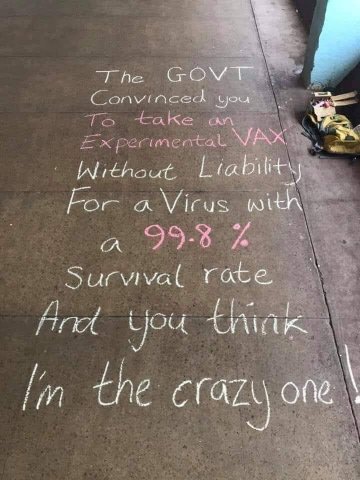 The GOVT
Convinced you
To take an
Experimental VAX
Without Liability
For a Virus with
a 99.8 %
Survival rate
And you think
I'm the crazy one!